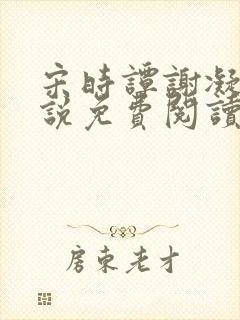 宋時譚謝凝
說免費閱讀
房東老才